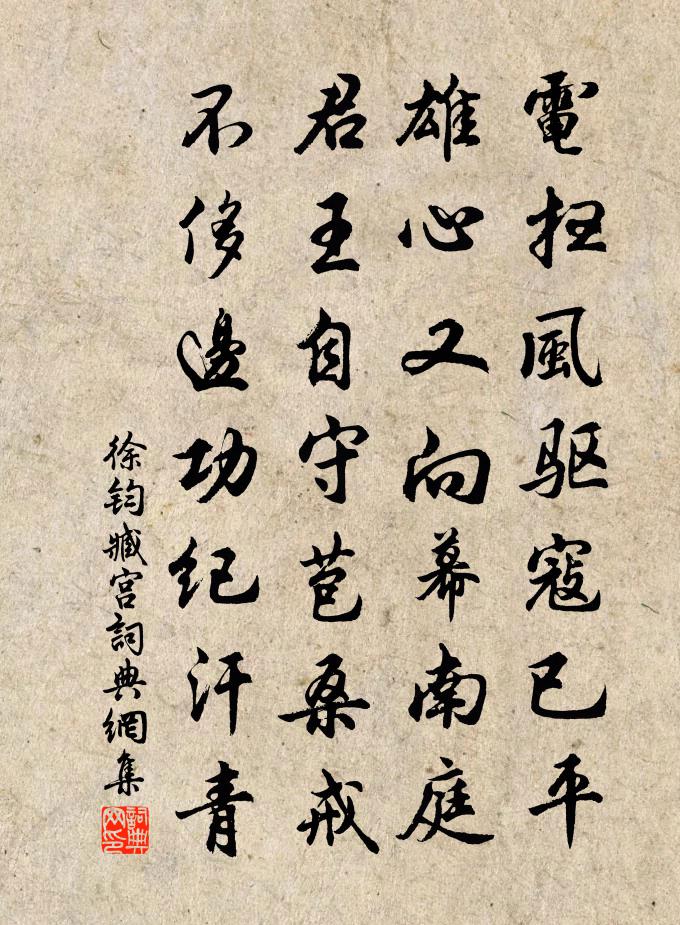 電掃風驅寇已平
雄心又向幕南庭
君王自守苞桑戒
不侈邊功紀汗青
徐鈞臧宫詞典網集
詞典网印